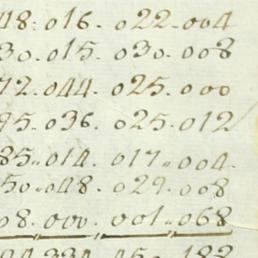 48: 016. 022. 004
30. 015. 030. 008
72. 044. 025. 000
95. 036. 025. 012
85.. 014. 017.. 004.
50.. 048. 029. 008
08. 000. 001. 068